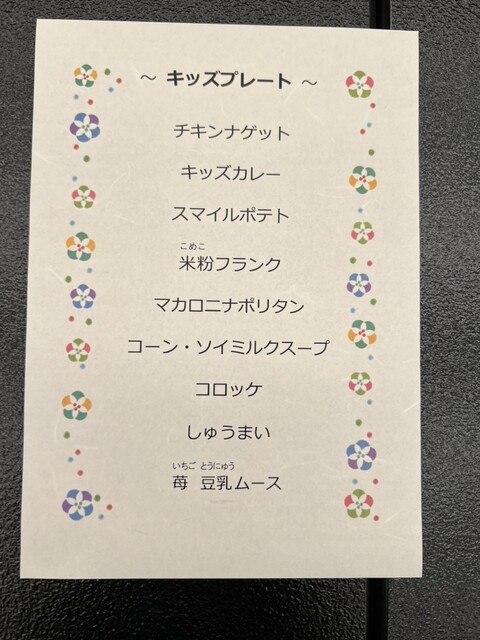 ～ キッズプレート ～
チキンナゲット
キッズカレー
スマイルポテト
こめこ
米粉フランク
マカロニナポリタン
コーン・ソイミルクスープ
コロッケ
しゅうまい
いちご とうにゅう
苺 豆乳ムース